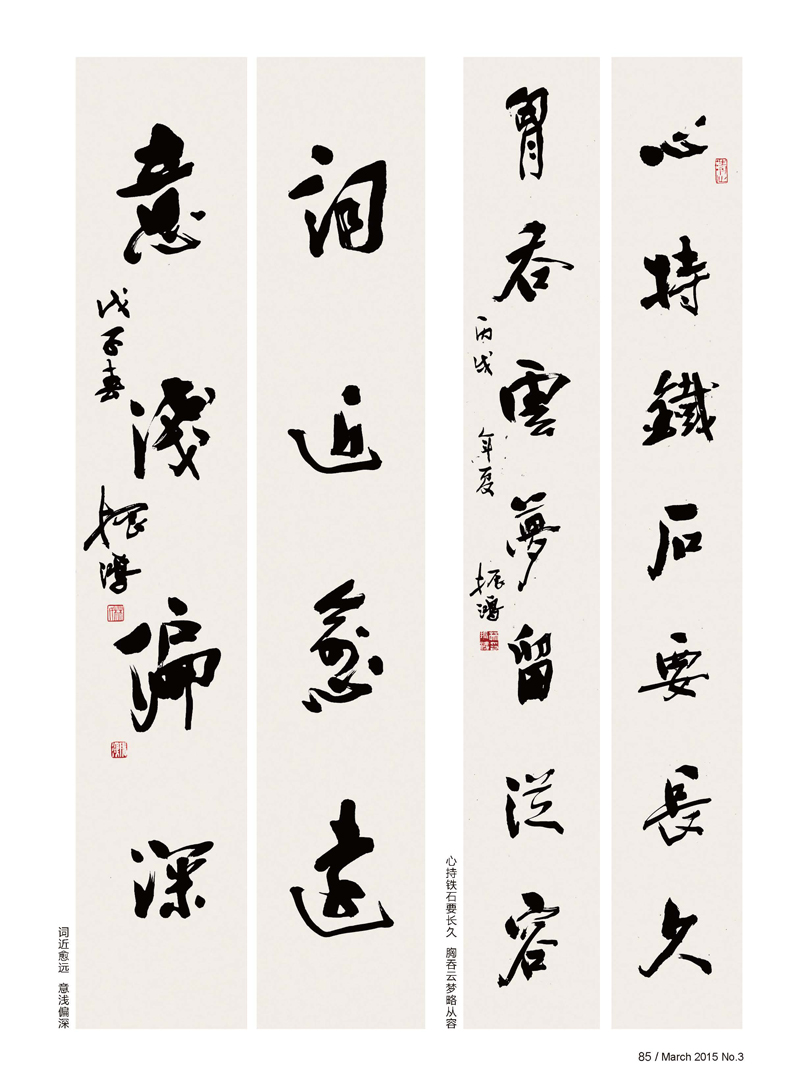 心持鐵石要長久
胷吞雲夢留從容
丙戌年夏
振鴻
心持铁石要长久 胸吞云梦略从容
詞近愈遠
意淺偏深
戊子春
振鴻
词近愈远 意浅偏深
85 / March 2015 No.3